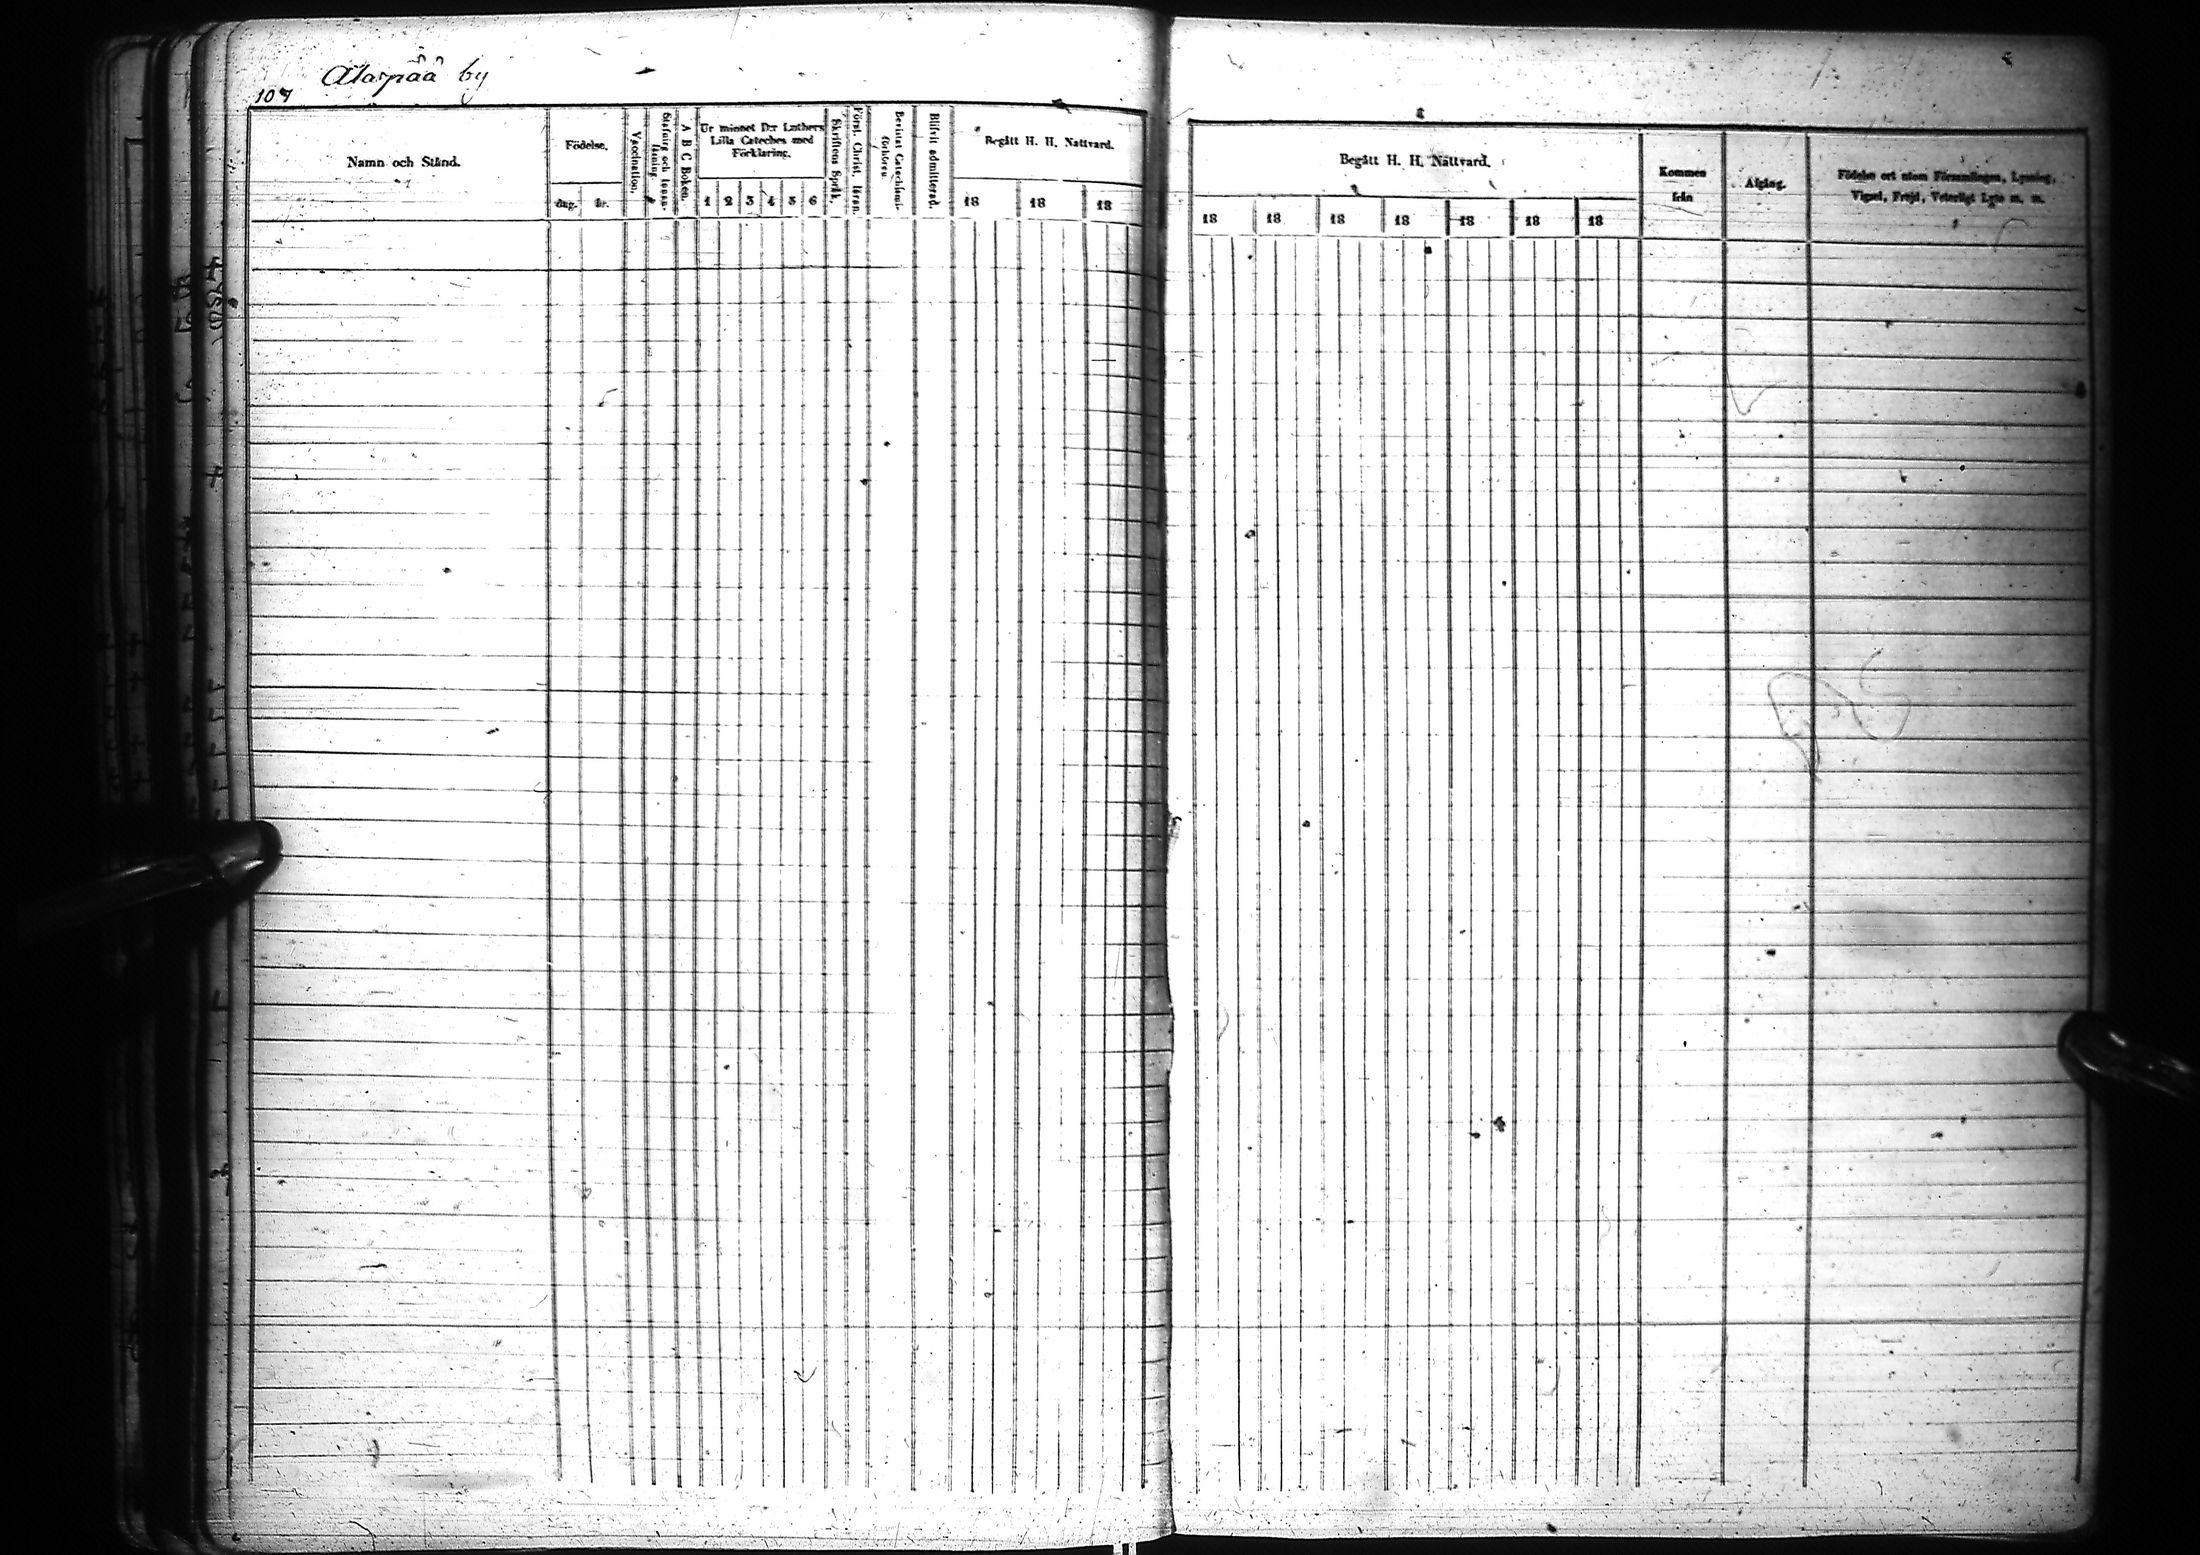 Alaspää by
107
Namn och Stånd.
Födelse.
dag.
år.
Vaccination.
Stafning och Innan-
läsning
A B C Boken.
Ur minnet D:r Luthers
Lilla Cateches med
Förklaring.
1 2 3 4 5 6
Skriftens Språk.
Först. Christ. läran.
Bevistat Catechismi-
förhören.
Blifvit admitterad.
Begått H. H. Nattvard.
18 18 18
Begått H. H. Nattvard.
18 18 18 18 18 18 18
Kommen
från
Afgång.
Födelse ort utom Församlingen, Lysning,
Vigsel, Frejd, Veterligt Lyte m. m.